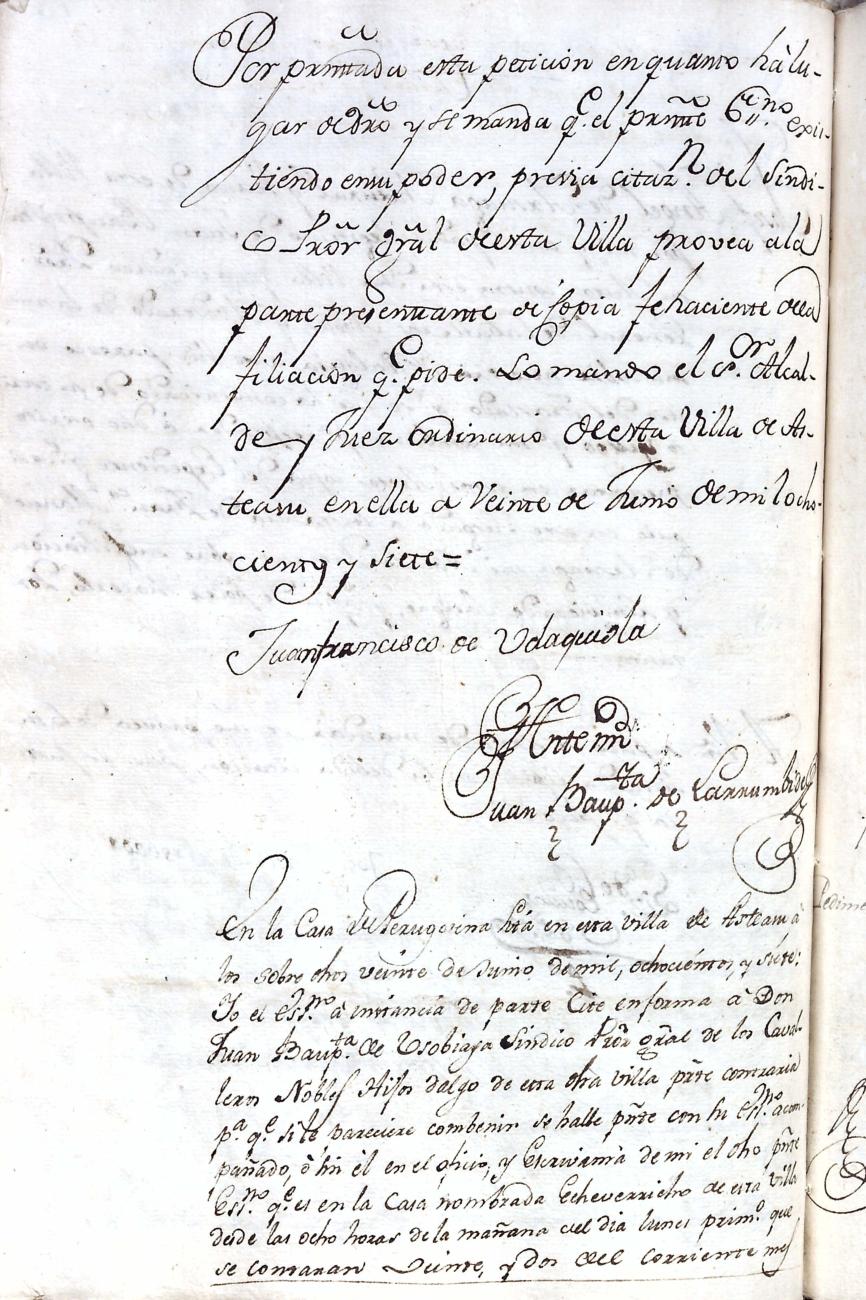 Por presᵗᵃda esta peticion en quanto há lu-
gar de dr̃o y se manda q.ᵉ el prñte Essⁿᵒ exis-
tiendo en su poder, previa citaz.ⁿ del Sindi-
co Pror̃ grãl de esta Villa provea a la
parte presentante de Copia fehaciente de la
filiación q.ᵉ pide. Lo mando el S.ᵒʳ Alcal-
de y Juez ordinario de esta Villa de As-
teasu en ella a Veinte de Junio de mil ocho-
cientos y Siete =
Juan francisco de Udaquiola
Ante mi
Juan Baup.ᵗᵃ de Larrumbide
En la Casa de Perugorina sita en esta villa de Asteasu à
los sobre dhos veinte de Junio de mil, ochocientos, y siete:
Yo el Essⁿᵒ à instancia de parte Cite en forma à Don
Juan Baup.ᵗᵃ de Usobiaga Sindico Pror̃ grãl de los Caval-
leros Nobles Hijos dalgo de esta dha villa prte contraria
p.ᵃ q.ᵉ si le pareciere combenir se halle prñte con su Essⁿᵒ acom-
pañado, ò sin èl en el oficio, y Escrivania de mi el dho prñte
Essⁿᵒ q.ᵉ es en la Casa nombrada Echeverricho de esta villa
desde las ocho horas de la mañana del dia lunes prim.ᵒ que
se contaran Veinte, y dos del corriente mes